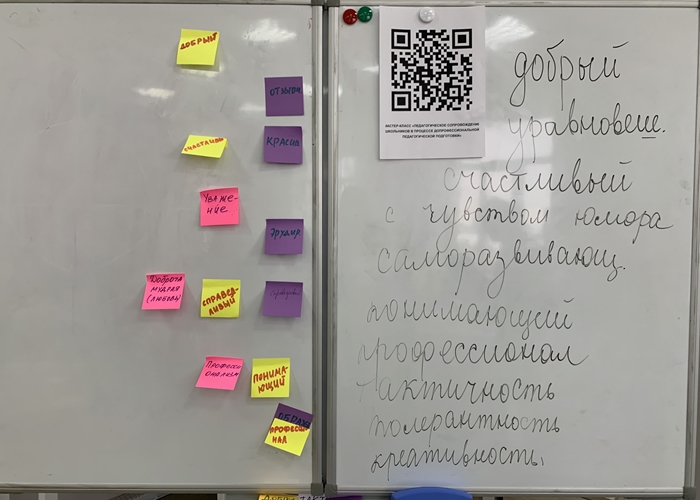 добрый
отзывч
счастливы
красив
уваже-
ние
эрудир
доброта
мудрая
(любовь)
справед-
ливый
професси
онализм
понима-
ющий
професси-
нал
МАСТЕР-КЛАСС «ПЕДАГОГИЧЕСКОЕ СОПРОВОЖДЕНИЕ
ШКОЛЬНИКОВ В ПРОЦЕССЕ ДОПРОФЕССИОНАЛЬНОЙ
ПЕДАГОГИЧЕСКОЙ ПОДГОТОВКИ»
добрый
уравновеш.
счастливый
с чувством юмора
саморазвивающ.
понимающий
профессионал
тактичность
толерантность
креативность.